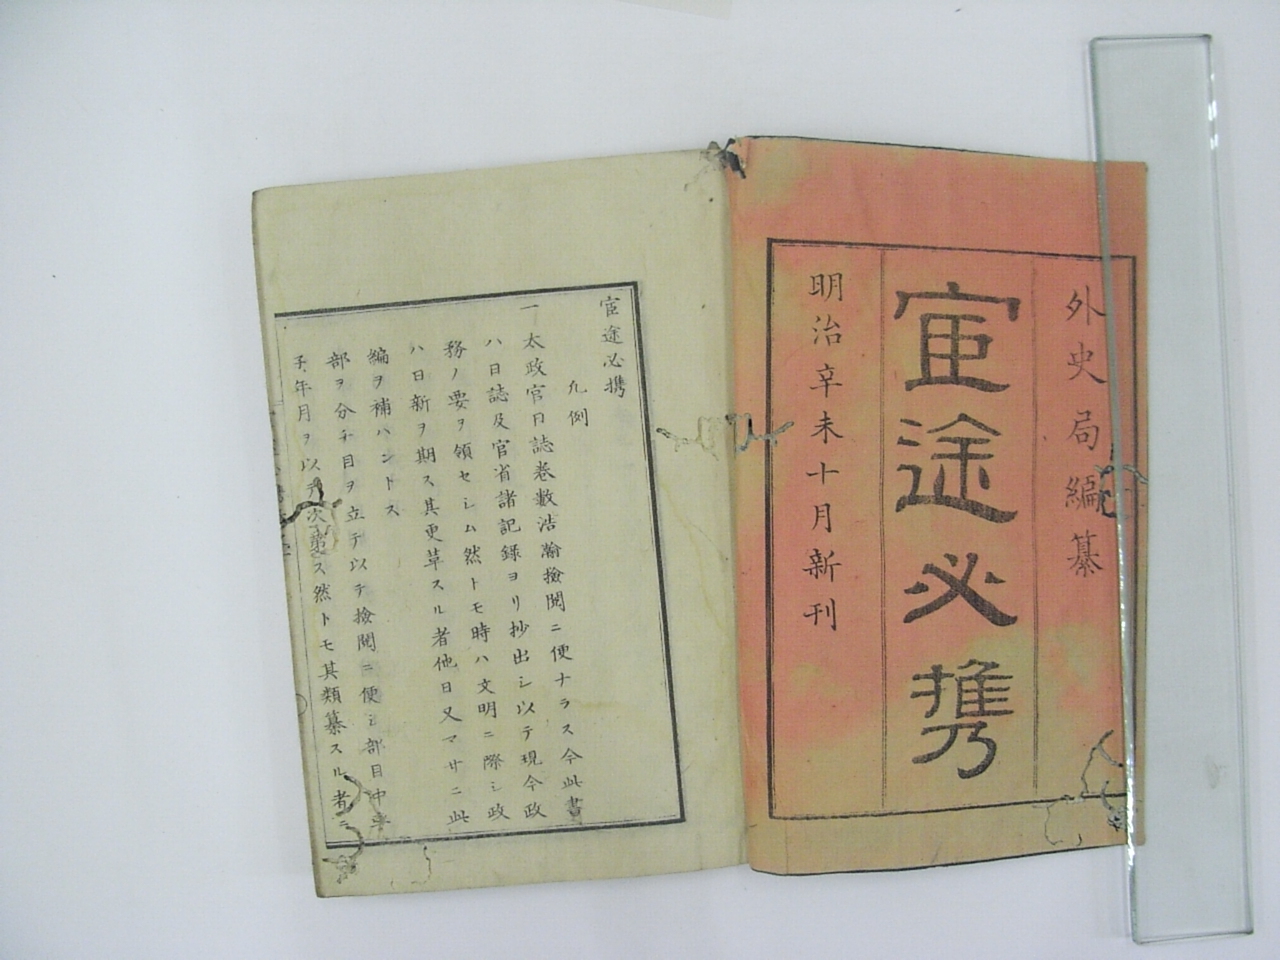 外史局編纂
宦途必携
明治辛未十月新刊
宦途必携
凡例
一太政官日誌巻數浩瀚撿閲ニ便ナラス今此書
ハ日誌及官省諸記録ヨリ抄出シ以テ現今政
務ノ要ヲ領セシム然トモ時ハ文明ニ際シ政
ハ日新ヲ期ス其更革スル者他日又マサニ此
編ヲ補ハントス
部ヲ分チ目ヲ立テ以テ撿閲ニ便シ部目中率
子年月ヲ以テ次第ス然トモ其類纂スル者ニ